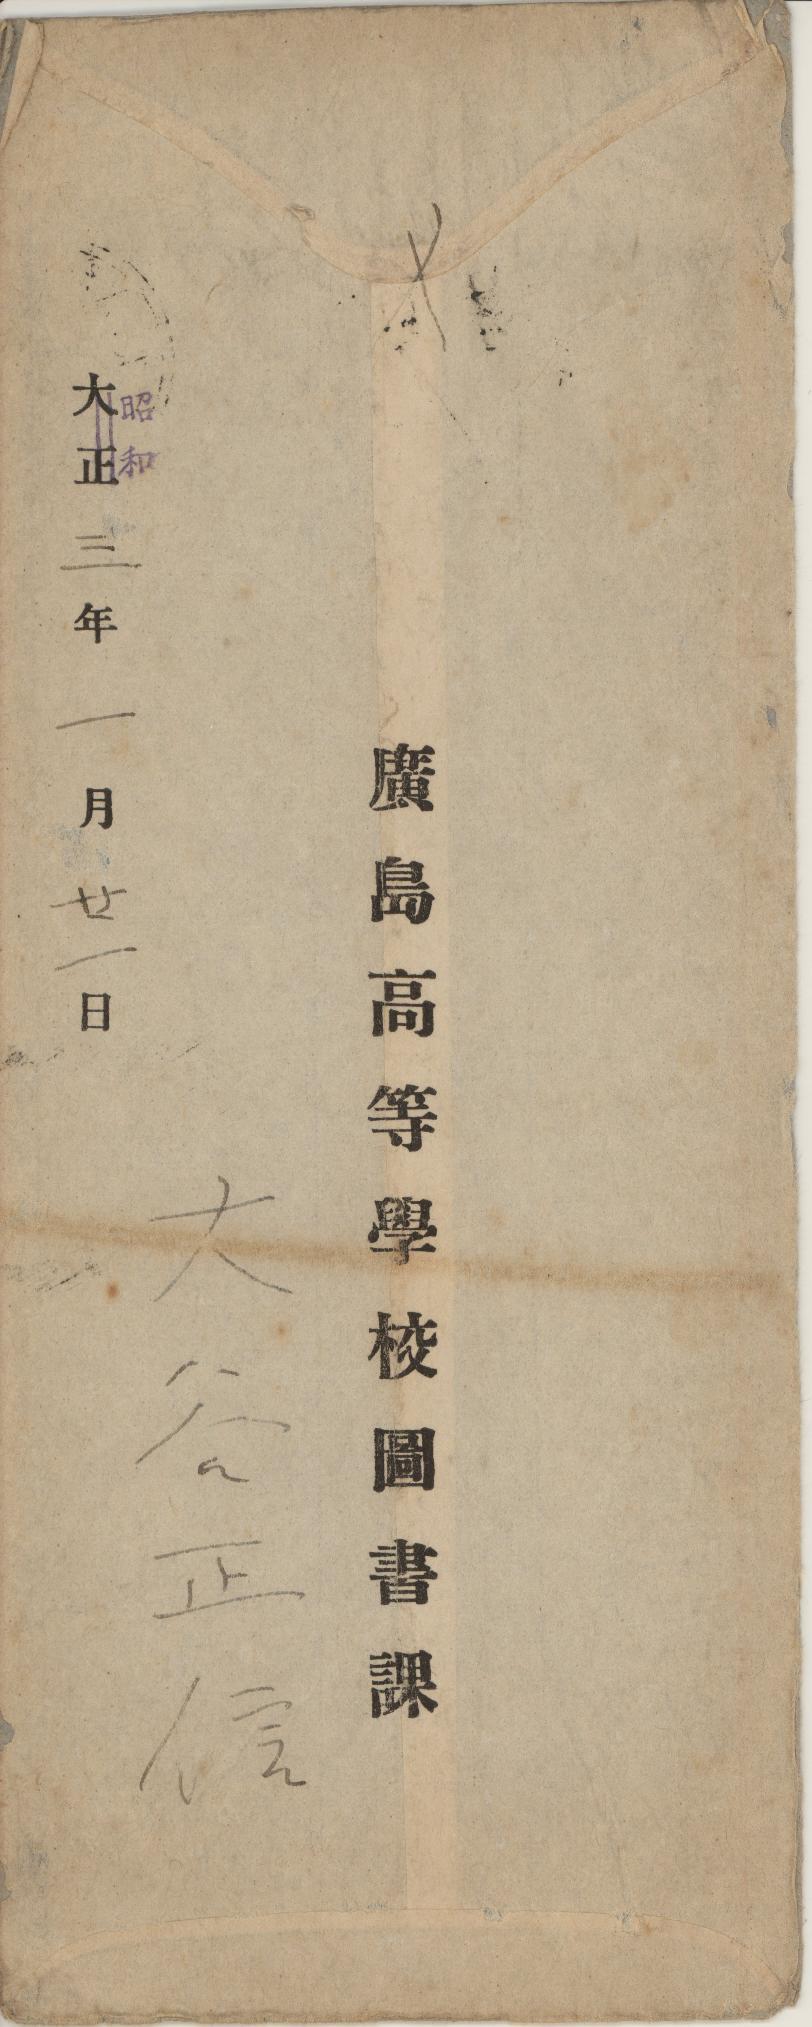 廣島高等學校圖書課
昭和
大正三年一月廿一日
大谷正信